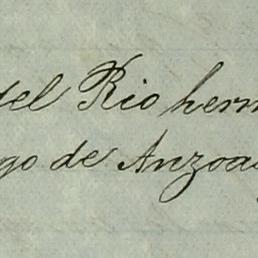 del Rio herm
go de Anzoa